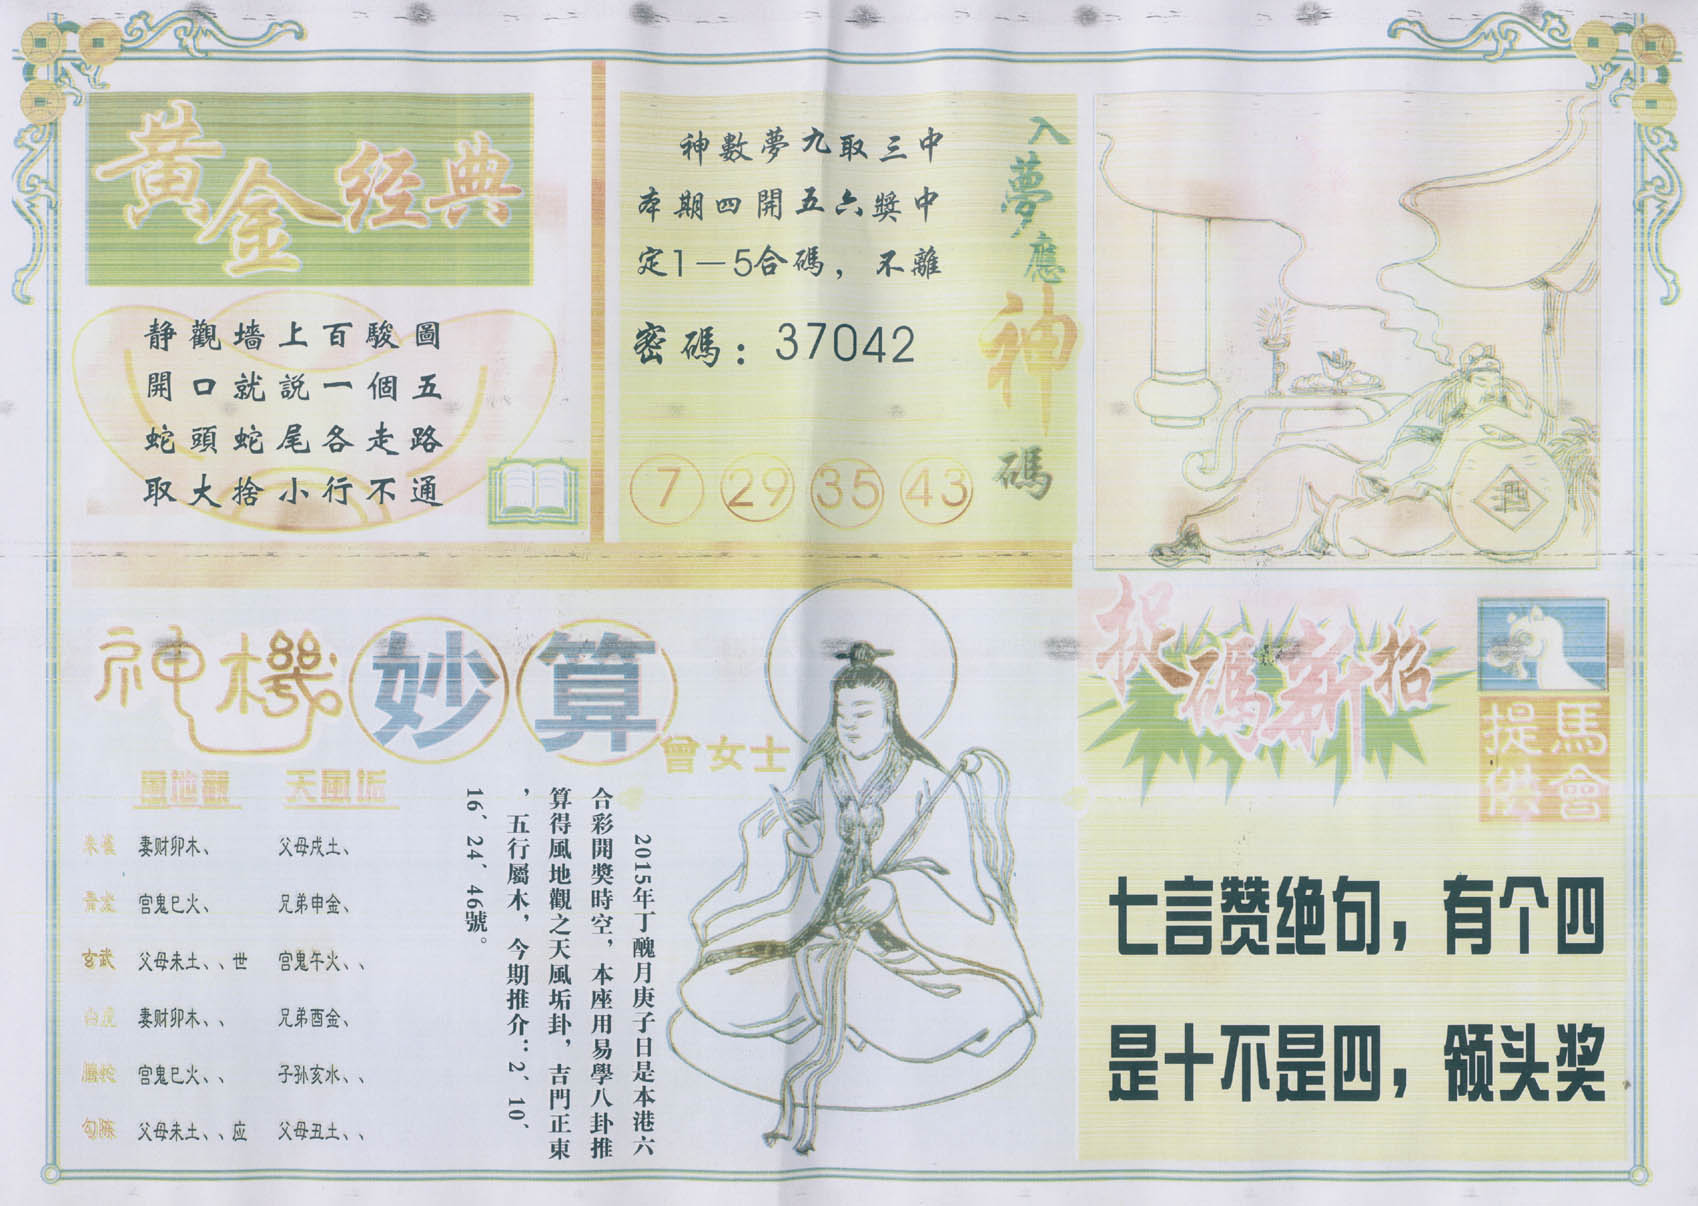 黃金经典
静觀墻上百駿圖
開口就説一個五
蛇頭蛇尾各走路
取大捨小行不通
神數夢九取三中
本期四開五六獎中
定1－5合碼，不離
密碼：37042
7 29 35 43
入夢應神碼
四
神機妙算
曾女士
風地觀 天風垢
朱雀 妻财卯木、 父母戌土、
青龙 宫鬼巳火、 兄弟申金、
玄武 父母未土、、世 宫鬼午火、、
白虎 妻财卯木、、 兄弟酉金、
腾蛇 宫鬼巳火、、 子孙亥水、、
勾陈 父母未土、、应 父母丑土、、
2015年丁醜月庚子日是本港六
合彩開獎時空，本座用易學八卦推
算得風地觀之天風垢卦，吉門正東
，五行屬木，今期推介：2、10、
16、24、46號。
捉碼新招
馬會提供
七言赞绝句，有个四
是十不是四，领头奖